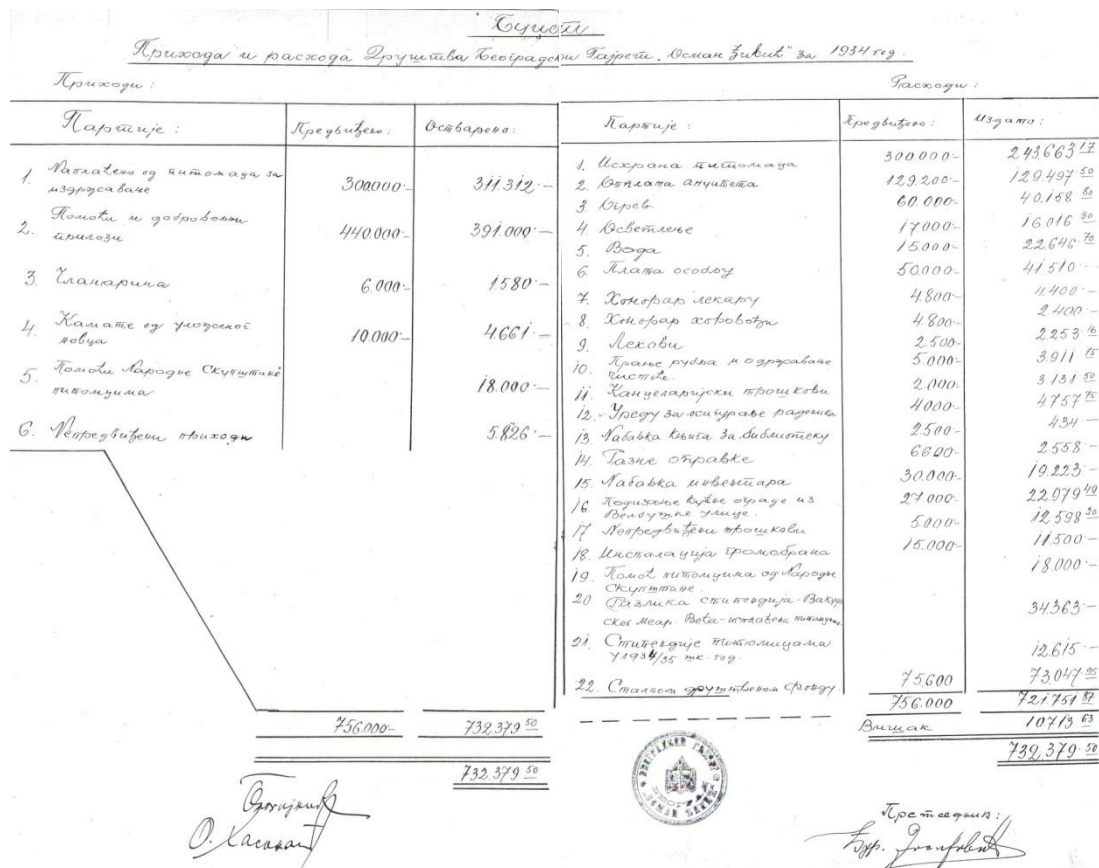 Буџет
Прихода и расхода Друштва Београдски Гајрет „Осман Ђикић" за 1934 год.
Приходи:
Партије: Предвиђено: Остварено:
1. Наплаћено од питомаца за
издржавање 300000.- 311.312.-
2. Помоћи и добровољни
прилози 440.000.- 391.000.-
3. Чланарина 6.000.- 1.580.-
4. Камате од уложеног
новца 10.000.- 4.661.-
5. Помоћи Народне Скупштине
питомцима 18.000.-
6. Непредвиђени приходи 5.826.-
756.000- 732.379 50
732.379 50
О. Хасанаг
Расходи:
Партије: Предвиђено: Издато:
1. Исхрана питомаца 300.000- 243.663 17
2. Отплата ануитета 129.200- 129.497 50
3. Огрев 60.000- 40.158 80
4. Осветлење 17000- 16.016 90
5. Вода 15.000- 22.646 70
6. Плата особљу 50.000- 41.510-
7. Хонорар лекару 4.800- 4.400-
8. Хонорар хоровођи 4.800- 2.400-
9. Лекови 2.500- 2253 16
10. Прање рубља и одржавање
чистоће. 5.000- 3.911 75
11. Канцеларијски трошкови 2.000- 3.131 50
12. Уреду за осигурање радника 4000- 4757 75
13. Набавка књига за библиотеку 2500- 434-
14. Разне оправке 6600- 2.558-
15. Набавка инвентара 30.000- 19.223-
16. Подизање ограде из
Велбушке улице. 27.000- 22.979 40
17. Непредвиђени трошкови 5.000- 12.598 20
18. Инсталација громобрана 15.000- 11.500-
19. Помоћ питомцима од Народне
Скупштине. 18.000-
20. Разлика стипендија-Вакуф
ског Меар. Већа-исплаћена питомцима 34.363-
21. Стипендије питомицама
у 1934/35 шк. год. 12.615-
22. Сталном друштвеном Фонду 75.600 73.047 95
756.000 721.751 87
Вишак 10713 63
732.379 50
БЕОГРАДСКИ ГАЈРЕТ
БЕОГРАД
„ОСМАН ЂИКИЋ"
Претседник: